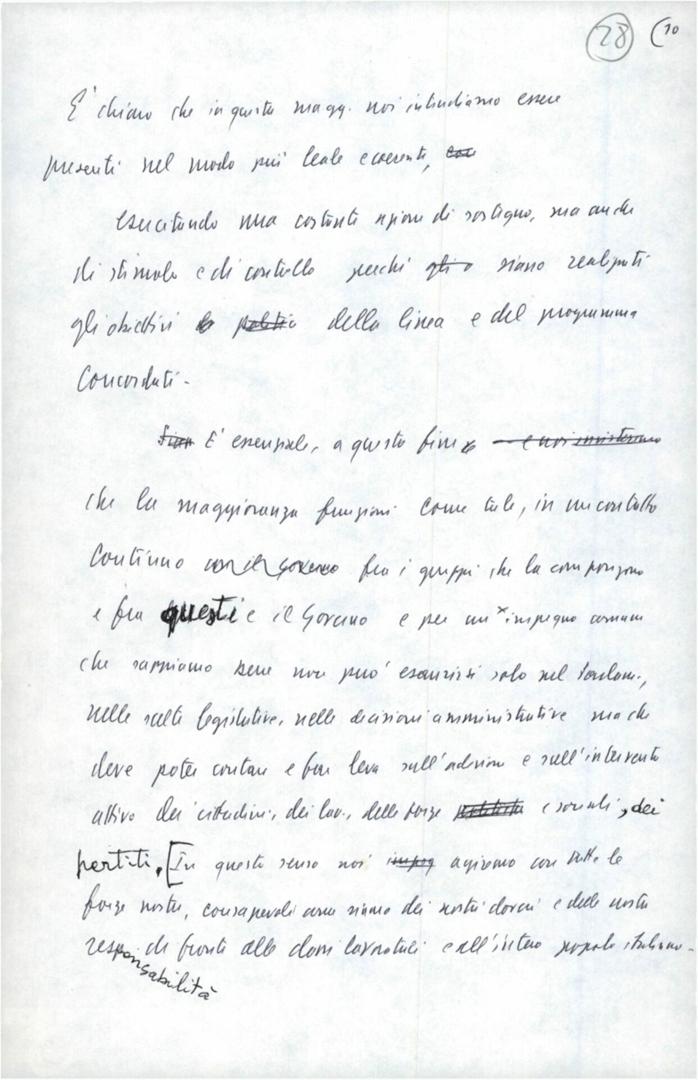 28 (10
E' chiaro che in questa magg. noi intendiamo essere
presenti nel modo più leale e coerente, con
esercitando una costante azione di sostegno, ma anche
di stimolo e di controllo perché gli siano realizzati
gli obiettivi politici della linea e del programma
concordati.
E' essenziale, a questo fine e noi insisteremo
che la maggioranza funzioni come tale, in un contatto
continuo con il governo fra i gruppi che la compongono
e fra questi e il Governo e per un impegno comune
che sappiamo bene non può esaurirsi solo nel Parlam.,
nelle scelte legislative, nelle decisioni amministrative ma che
deve poter contare e far leva sull'adesione e sull'intervento
attivo dei cittadini, dei lav., delle forze politiche e sociali, dei
partiti. [In questo senso noi impeg agiremo con tutte le
forze nostre, consapevoli come siamo dei nostri doveri e delle nostre
responsabilità di fronte alle classi lavoratrici e all'intero popolo italiano.